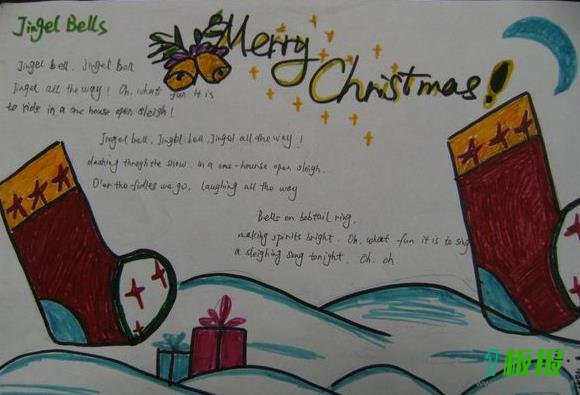 Jingel Bells
Merry
Christmas!
Jingel bell. Jingel Bell
Jingel all the way! Oh, what fun it is
to ride in a one house open sleigh!
Jingel bell, Jingel bell, Jingel all the way!
dashing throghthe snow. in a one-hourse open sleigh.
O'er the fidles we go, laughing all the way
Bells on bobtail ring,
making spirits bright. Oh, what fun it is to sing
a sleighing song tonight. Oh. oh.
板报